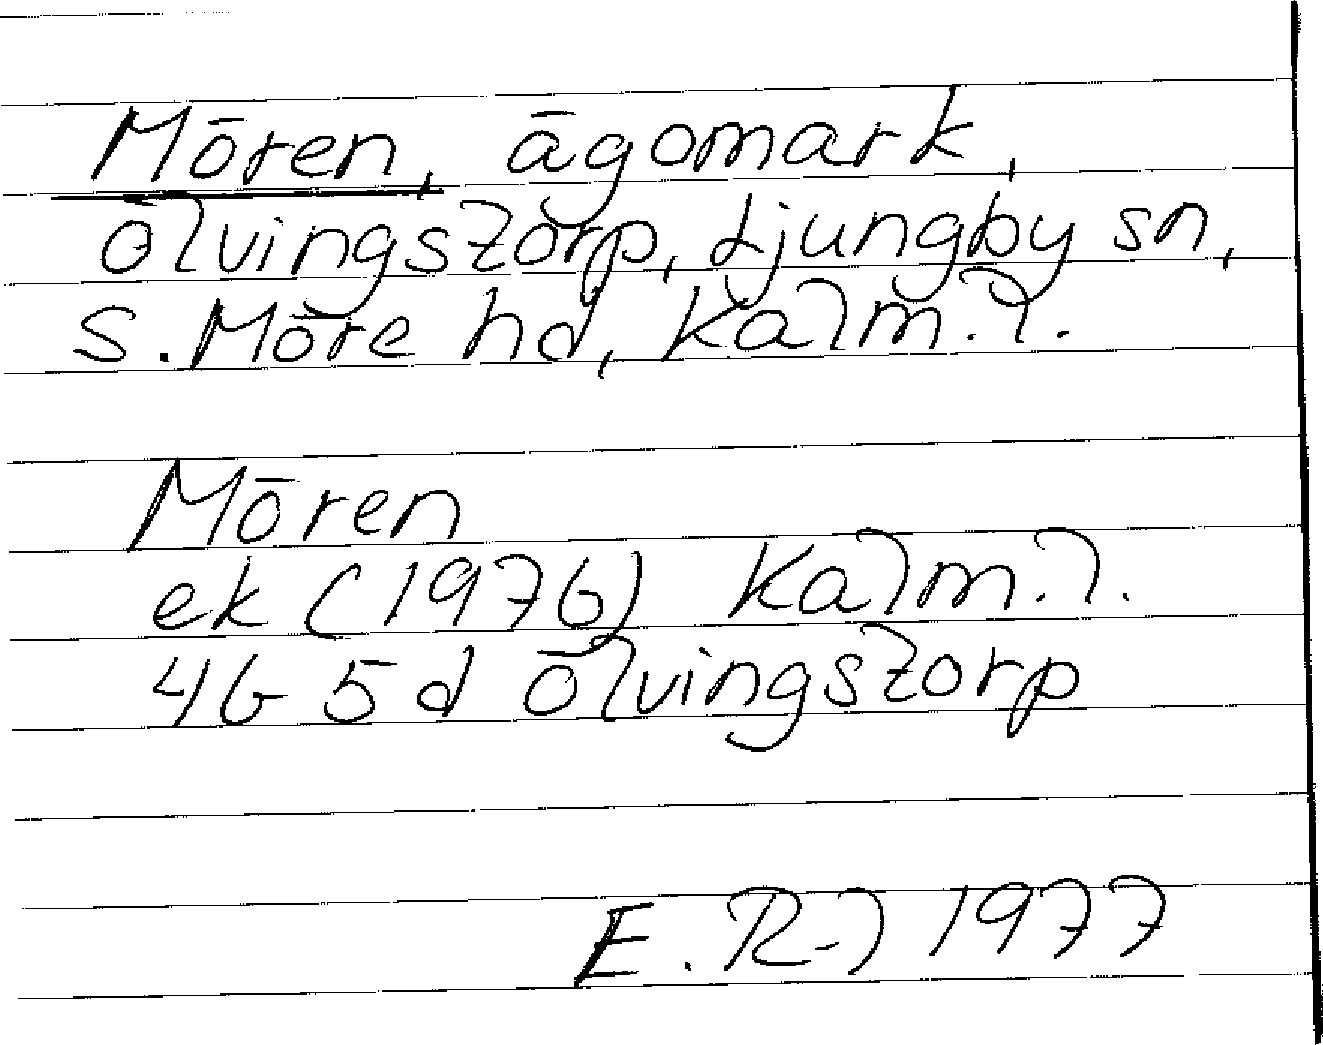 Mören, ägomark,
Ölvingstorp, Ljungby sn,
S. Möre hd, Kalm. l.
Mören
ek (1976) Kalm. l.
4G 5d Ölvingstorp
E. R-l 1977